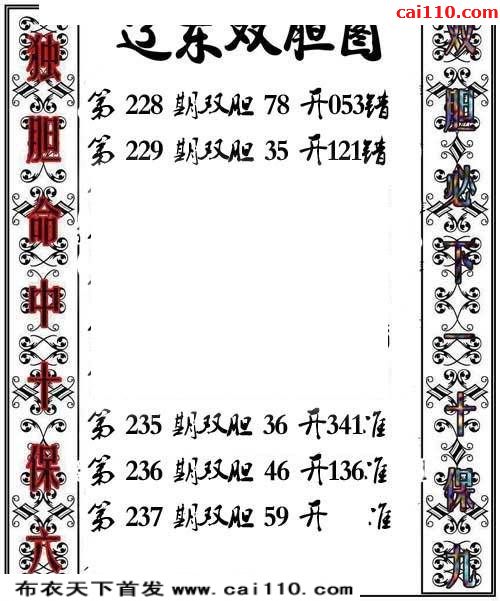 cai110.com
辽东双胆图
独胆命中十保六
第 228 期双胆 78 开053错
第 229 期双胆 35 开121错
第 235 期双胆 36 开341准
第 236 期双胆 46 开136准
第 237 期双胆 59 开 准
双胆必下一十保九
布衣天下首发 www.cai110.com